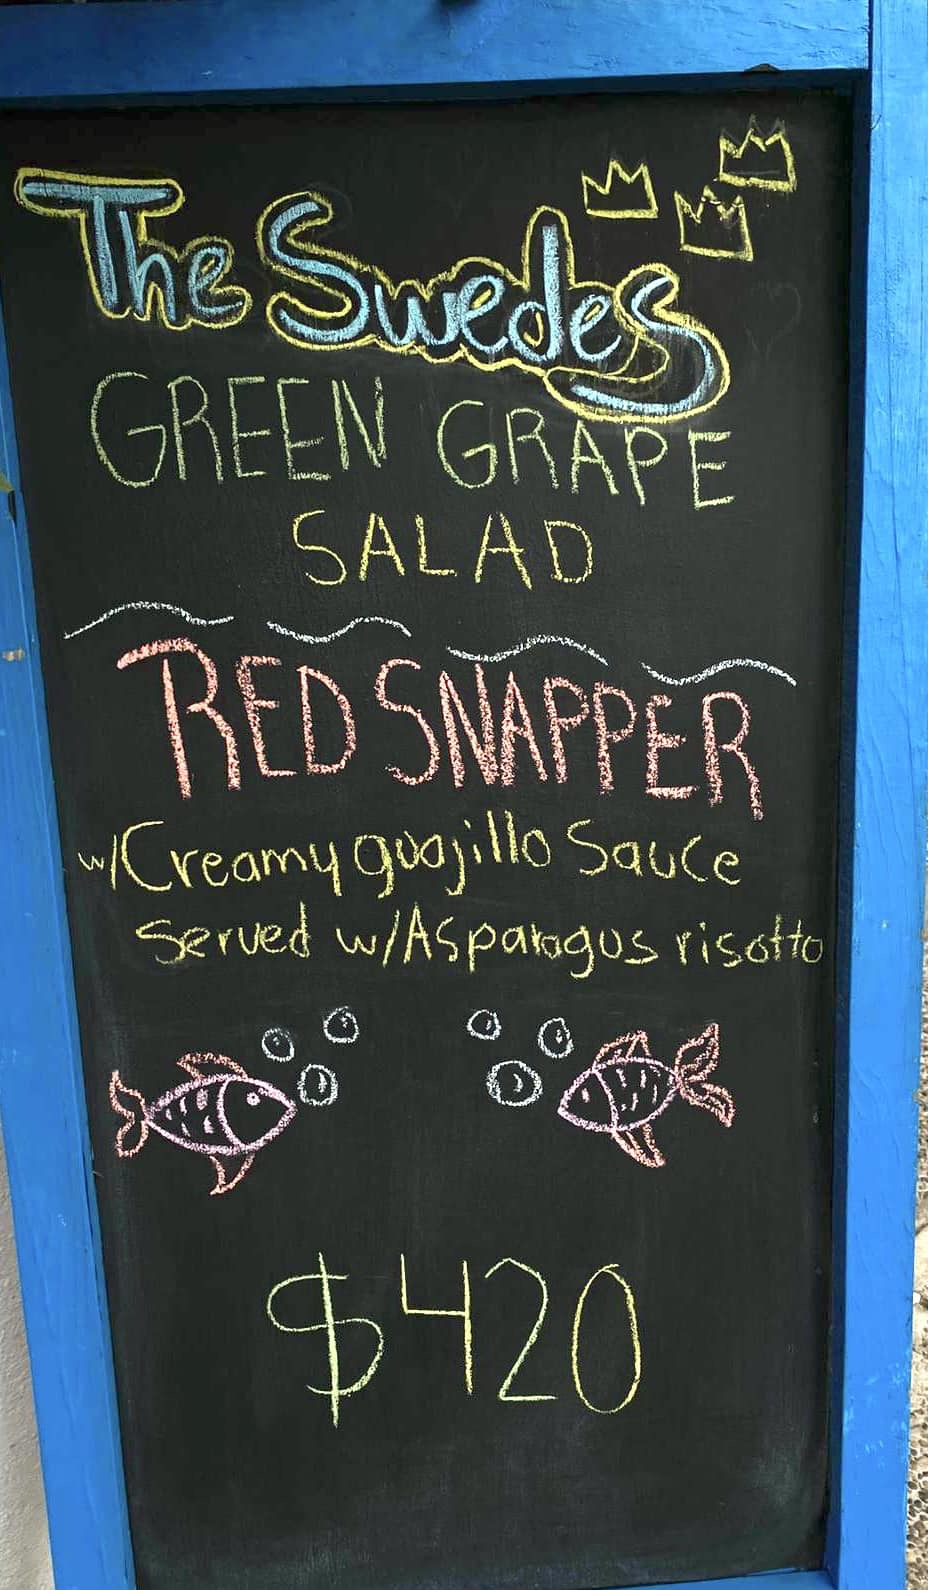 The Swedes
GREEN GRAPE
SALAD
RED SNAPPER
w/Creamy guajillo Sauce
Served w/Asparagus risotto
$420